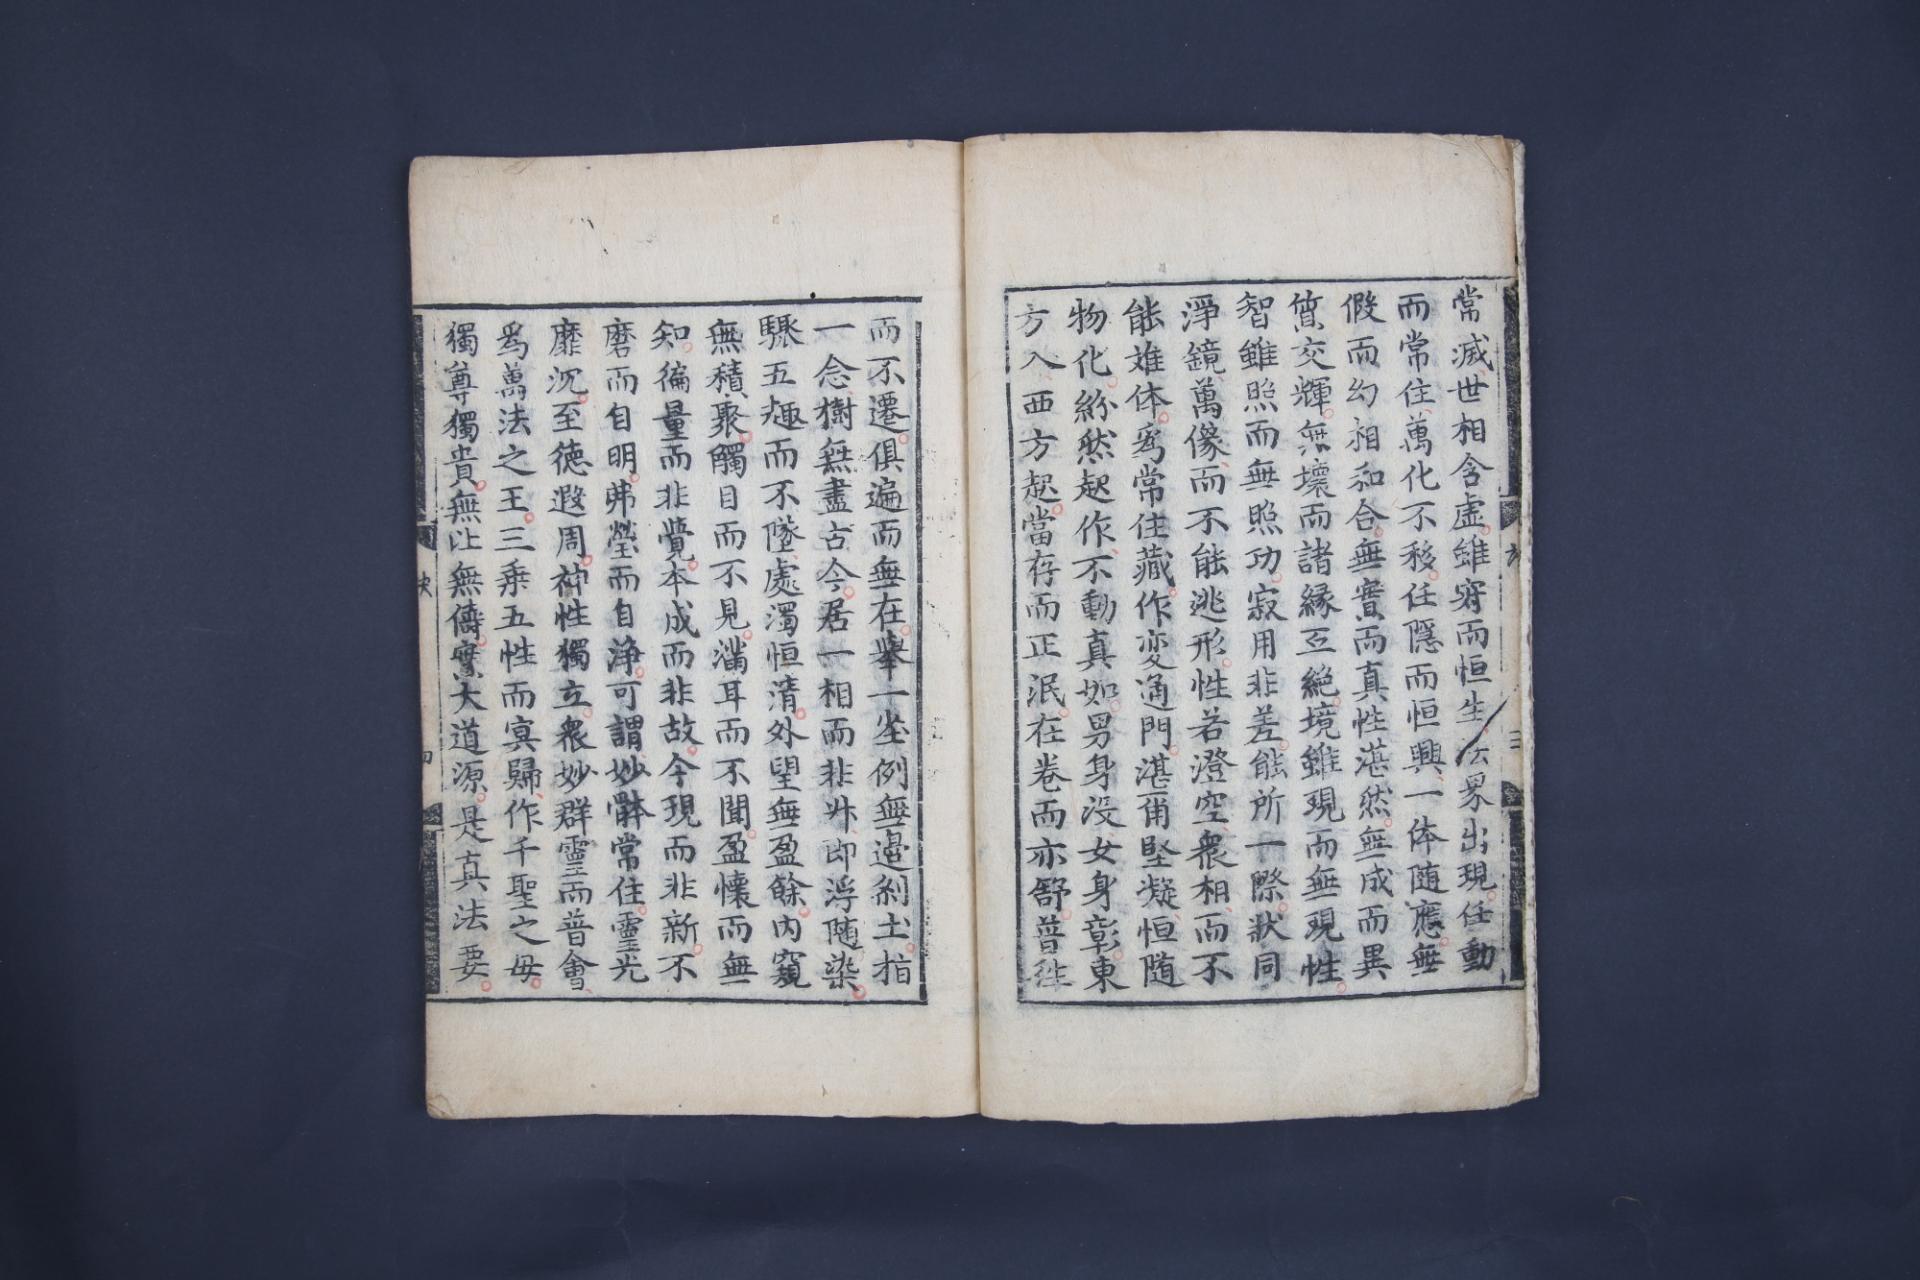 常滅世相含虛雖寂而恒生法界出現任動
而常住萬化不移任隱而恒興一体随應無
假而幻相和合無實而真性湛然無成而異
質交輝無壞而諸緣互絕境雖現而無現性
智雖照而無照功寂用非差能所一際狀同
淨鏡萬像而不能逃形性若澄空衆相而不
能雄体爲常住藏作变通門湛甫堅凝恒随
物化紛然起作不動真如男身沒女身彰東
方入西方起當存而正泯在卷而亦舒普徃
而不遷俱遍而無在舉一坐例無邊刹土指
一念樹無盡古今居一相而非升即浮随染
驟五趣而不墜處濁恒清外望無盈餘内窺
無積聚觸目而不見滿耳而不聞盈懷而無
知徧量而非覺本成而非故今現而非新不
磨而自明弗瑩而自淨可謂妙體常住靈光
靡沉至德遐周神性獨立衆妙群靈而普會
爲萬法之王三乘五性而冥歸作千聖之母
獨尊獨貴無比無儔實大道源是真法要
訣
三
四